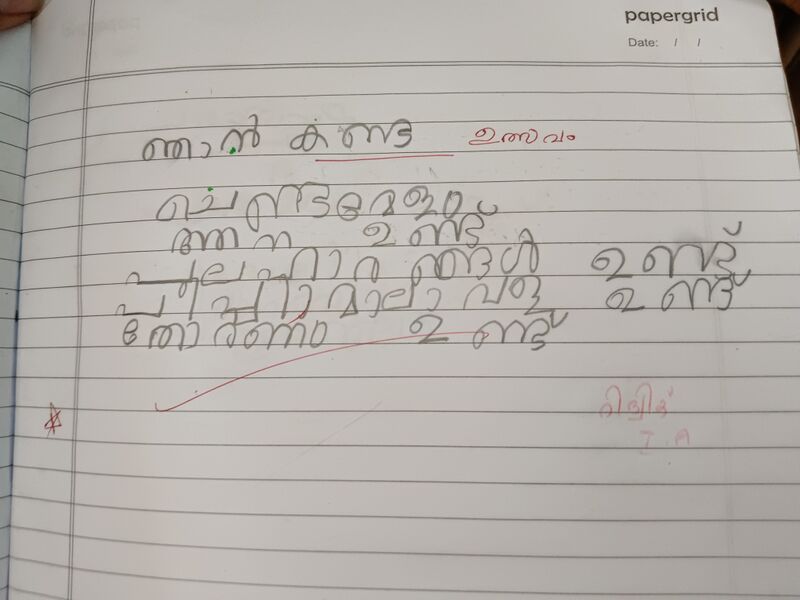 papergrid
Date: / /
ഞാൻ കണ്ട ഉത്സവം
ചെണ്ടമേളം
ആന ഉണ്ട്
പലഹാരങ്ങൾ ഉണ്ട്
വള ഉണ്ട്
തോരണം ഉണ്ട്
I A